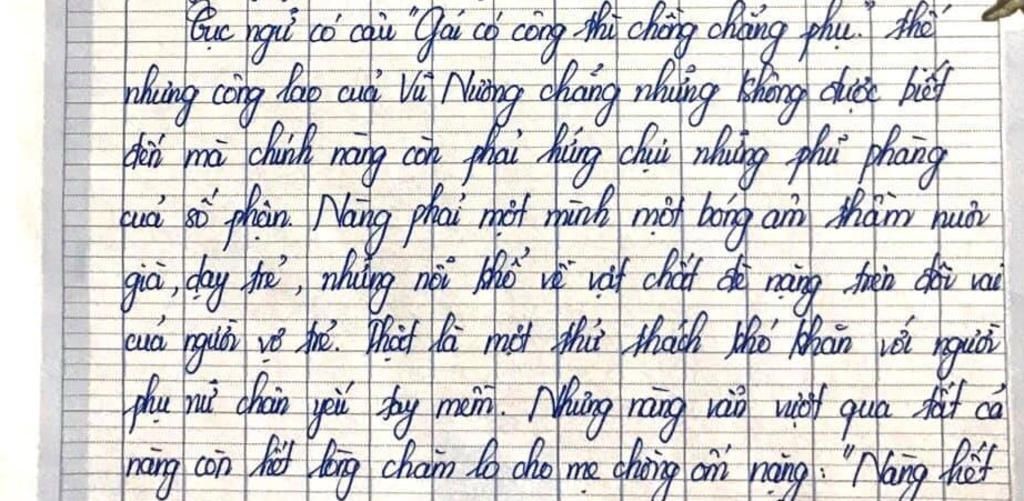 Tục ngữ có câu "Gái có công thì chồng chẳng phụ." Thế
nhưng công lao của Vũ Nương chẳng những không được biết
đến mà chính nàng còn phải hứng chịu những phũ phàng
của số phận. Nàng phải một mình một bóng âm thầm nuôi
già, dạy trẻ, những nỗi khổ về vật chất đè nặng trên đôi vai
của người vợ trẻ. Thật là một thử thách khó khăn với người
phụ nữ chân yếu tay mềm. Nhưng nàng vẫn vượt qua tất cả
nàng còn hết lòng chăm lo cho mẹ chồng ốm nặng: "Nàng hết